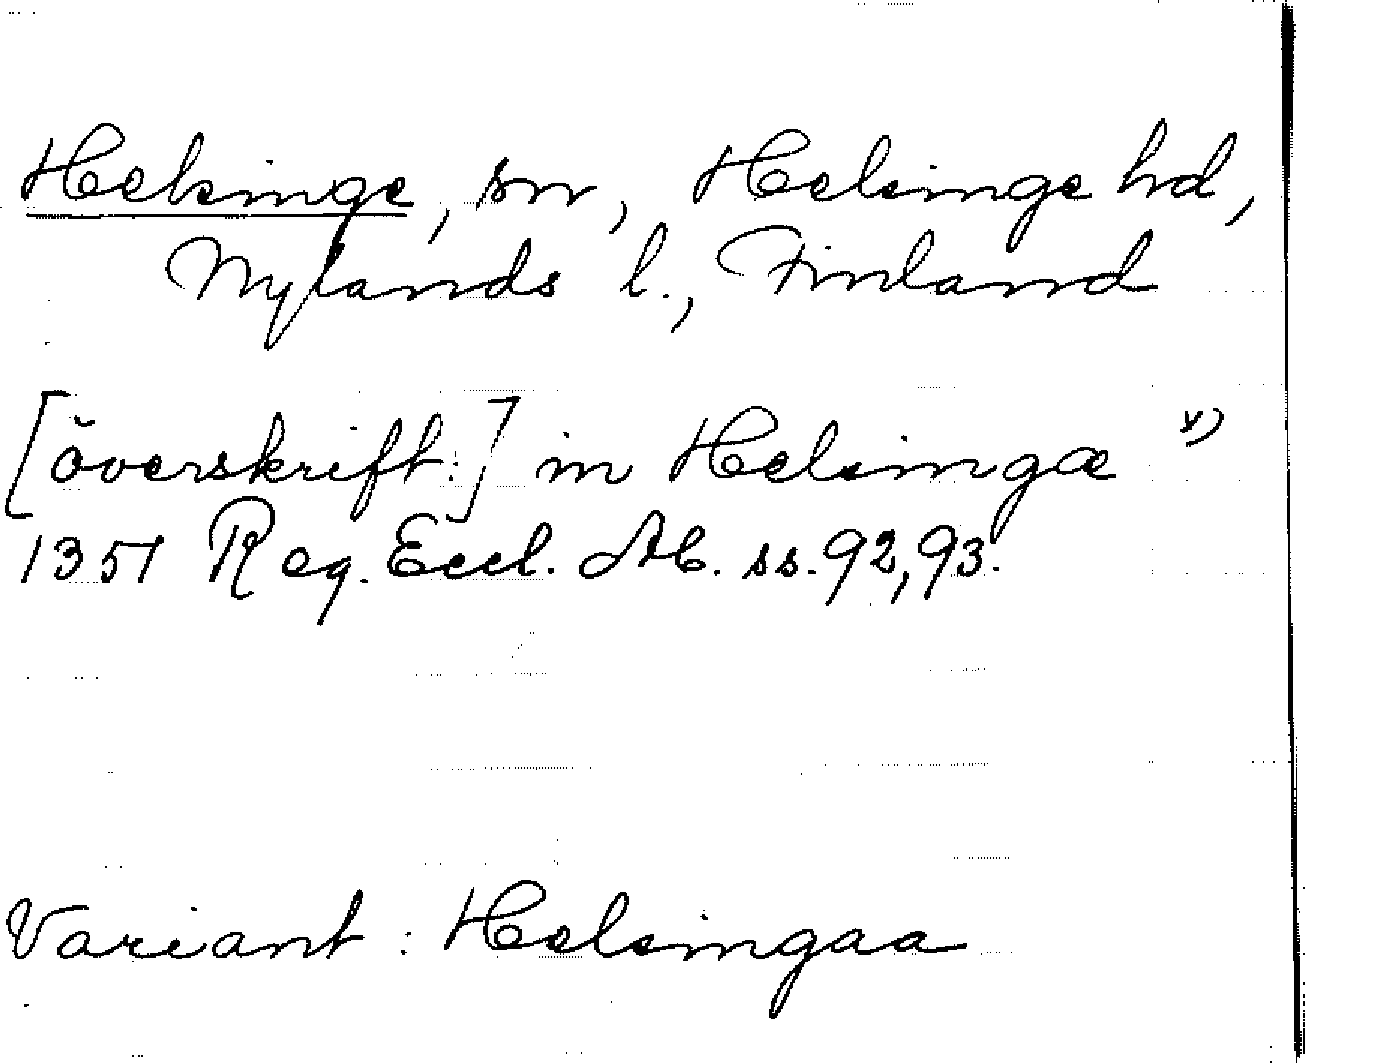 Helsinge, sn, Helsinge hd,
Nylands l., Finland
[överskift:] in Helsingæ x)
1351 Reg. Eccl. Ab. ss. 92, 93.
Variant: Helsingaa